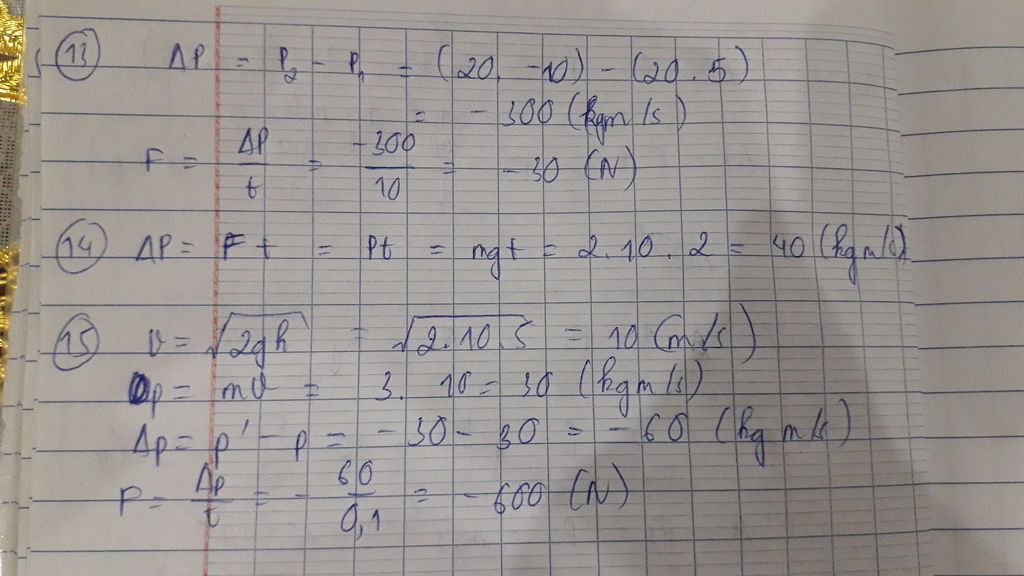 13 ΔP = P₂ - P₁ = (20. -10) - (20.5)
= -300 (kgm/s)
F = ΔP/t = -300/10 = -30 (N)
14 ΔP = Ft = Pt = mgt = 2.10.2 = 40 (kgm/s)
15 v = √2gh = √2.10.5 = 10 (m/s)
p = mv = 3. 10 = 30 (kgm/s)
Δp = p' - p = -30 - 30 = -60 (kgm/s)
F = Δp/t = - 60/0,1 = -600 (N)